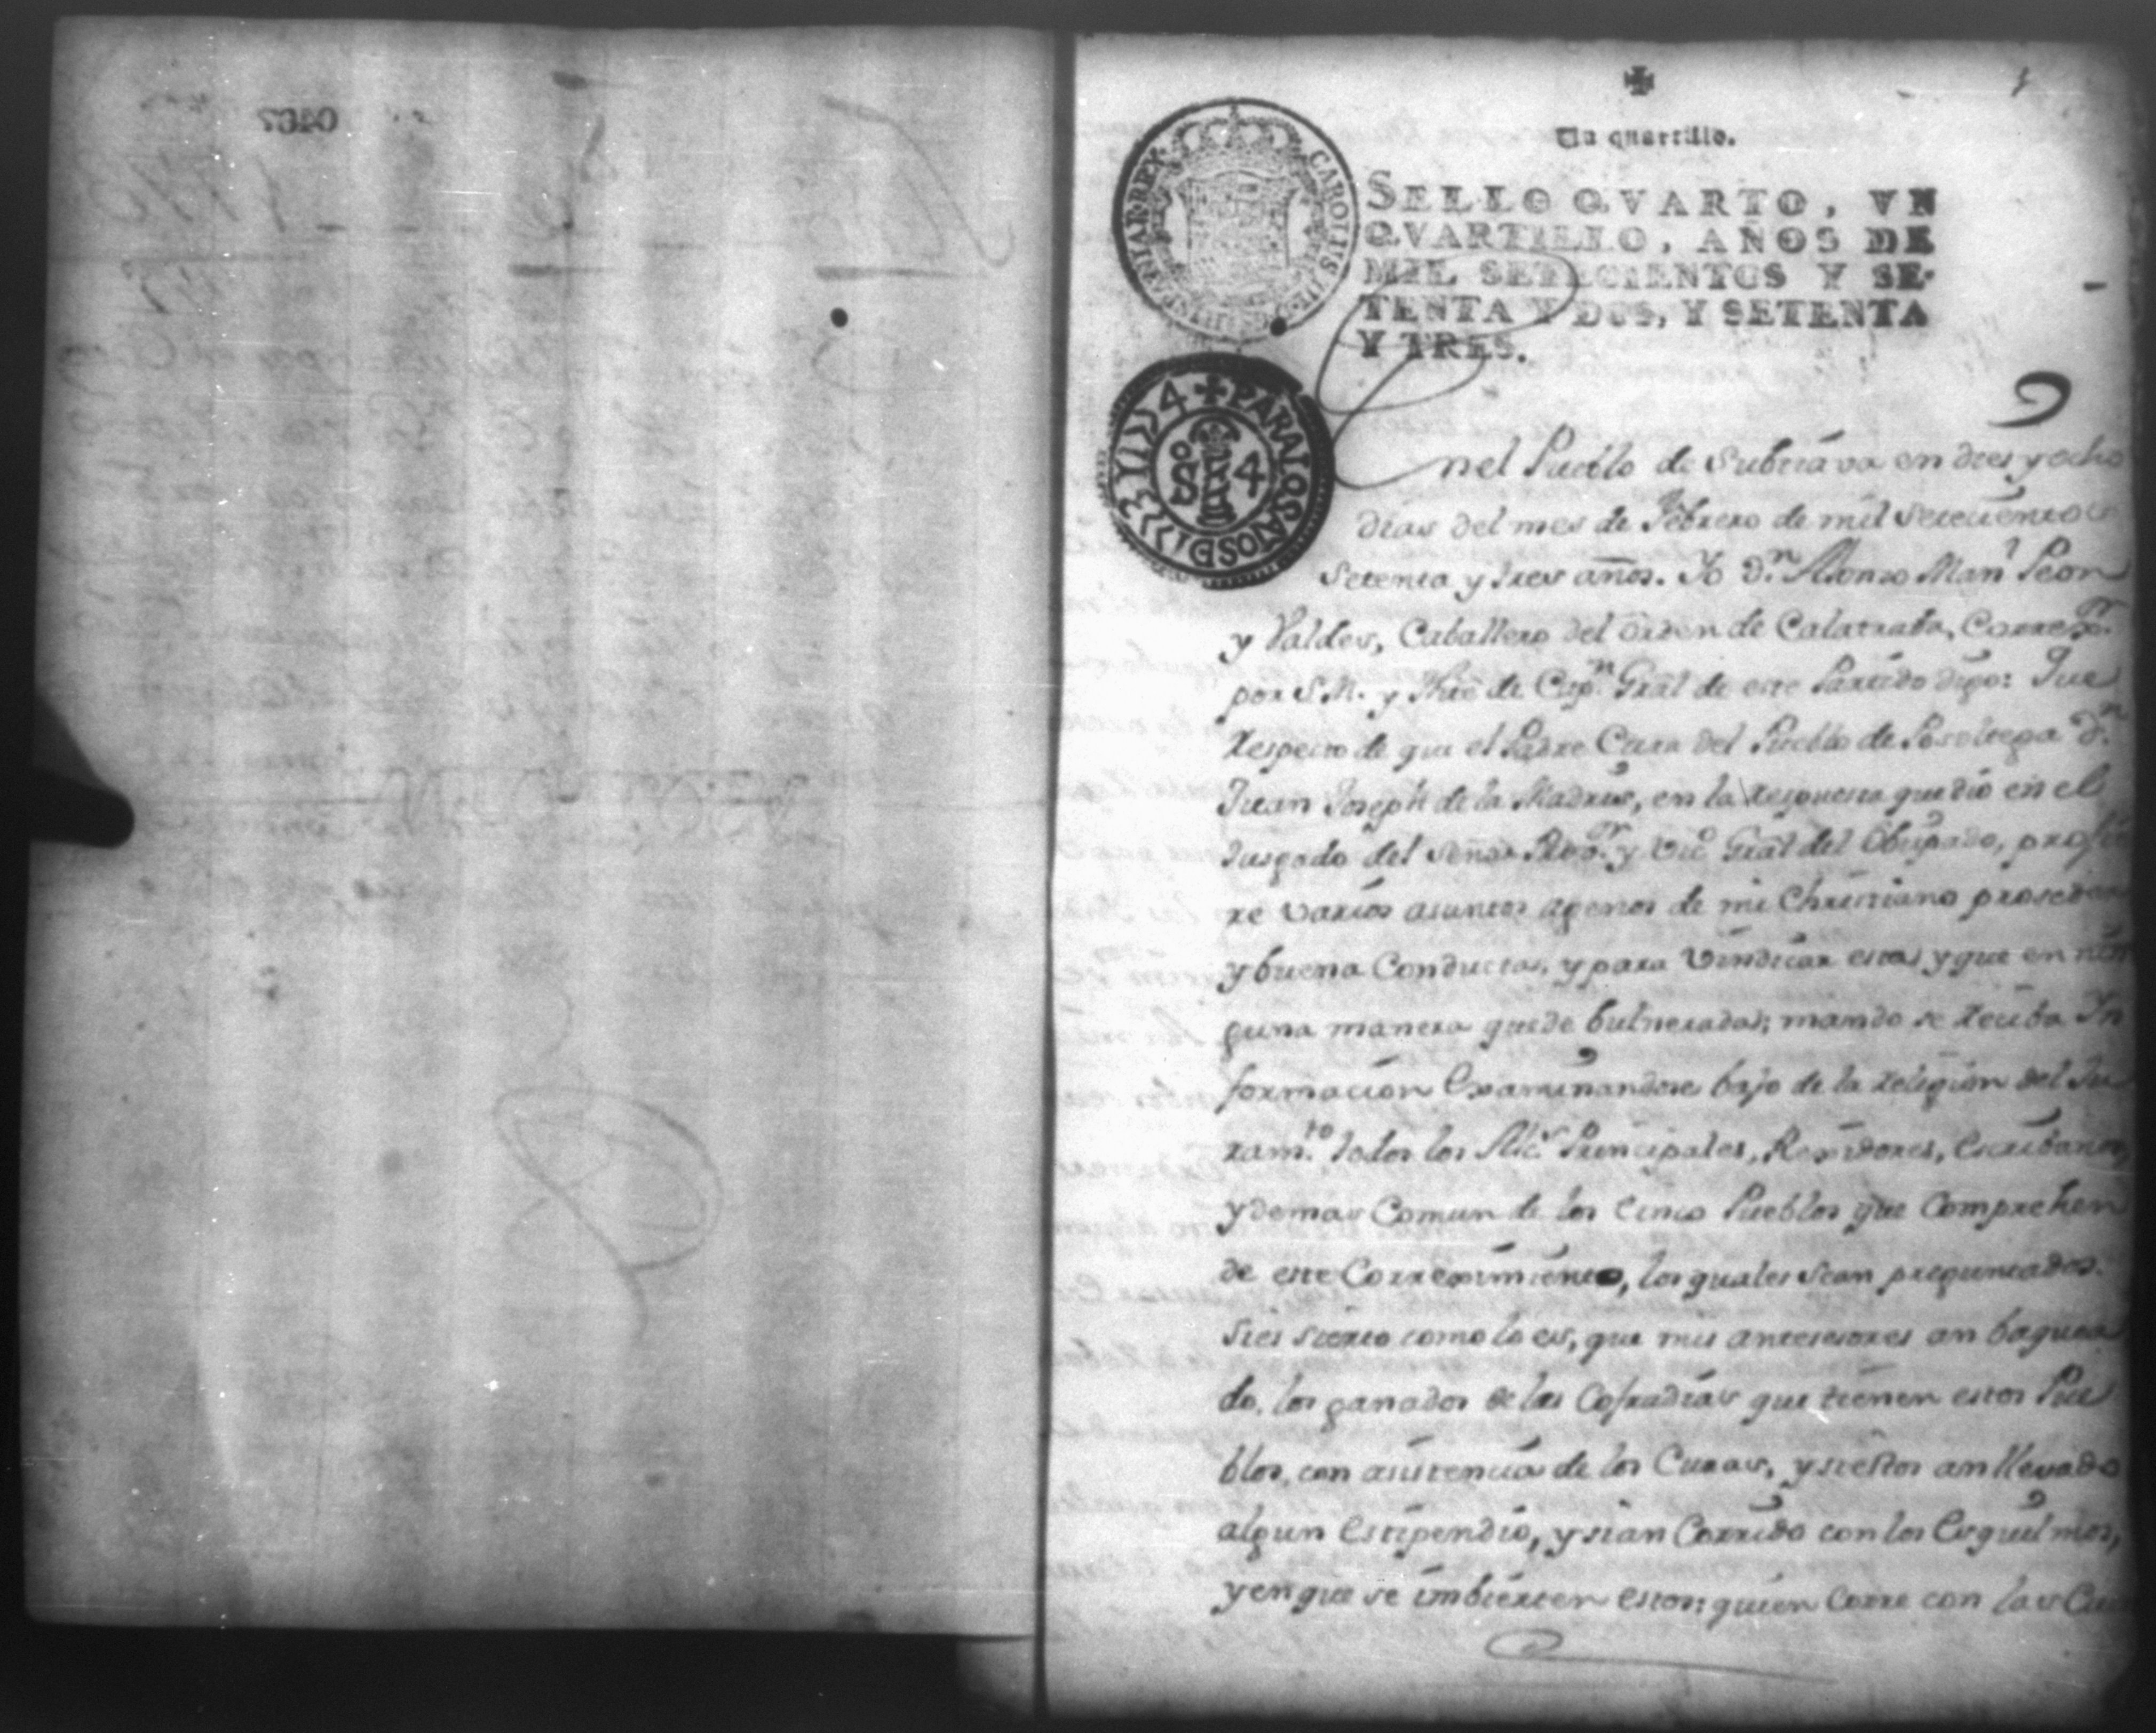 1
Un quartillo.
SELLO QVARTO, VN
QVARTILLO, AÑOS DE
MIL SETECIENTOS Y SE-
TENTA Y DOS, Y SETENTA
Y TRES.
CAROLUS III
PARA LOS AÑOS D 1773 Y 1774
S 4
Enel Pueblo de Subtiava en dies y ocho
dias del mes de Febrero de mil Setecientos
Setenta y tres años. Yo Dn. Alonso Manl Peon
y Valdes, Caballero del orden de Calatraba, Corregor.
por S.M. y Thte de Capn. Gral de este Partido digo: Que
Respecto de que el Padre Cura del Pueblo de Posoltega Dn.
Juan Joseph de la Madris, en la Respuesta que dio en el
Jusgado del Señor Provor. y Vico Gral del Obispado, profie
re varios asuntos agenos de mi Christiano proseder
y buena Conductas, y para vindicar estas y que en nin
guna manera quede bulneradas; mando se Reciba In
formacion Examinandose bajo de la Religion del Ju
ramto. todos los Alces Principales, Regidores, Escribanos
y demas Comun de los Cinco Pueblos que Comprehen
de este Corregimiento, los quales sean preguntados.
Si es sierto como lo es, que mis antesesores an baquea
do, los ganados de las Cofradias que tienen estos Pue
blos, con asistencia de los Curas, y si estos an llevado
algun Estipendio, y si an Corrido con los Esquilmos,
y en que se imbierten estos; quien Corre con las Cu